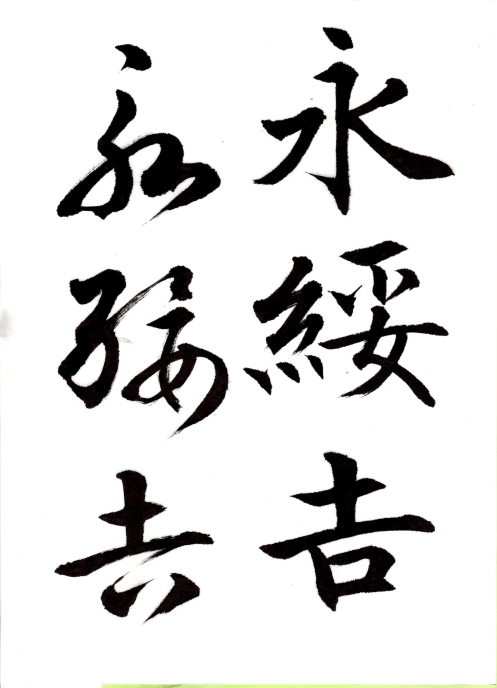 永綏吉
永綏吉